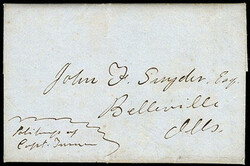 John F. Snyder, Esq
Belleville
Ills.
Politeness of
Capt. Turner